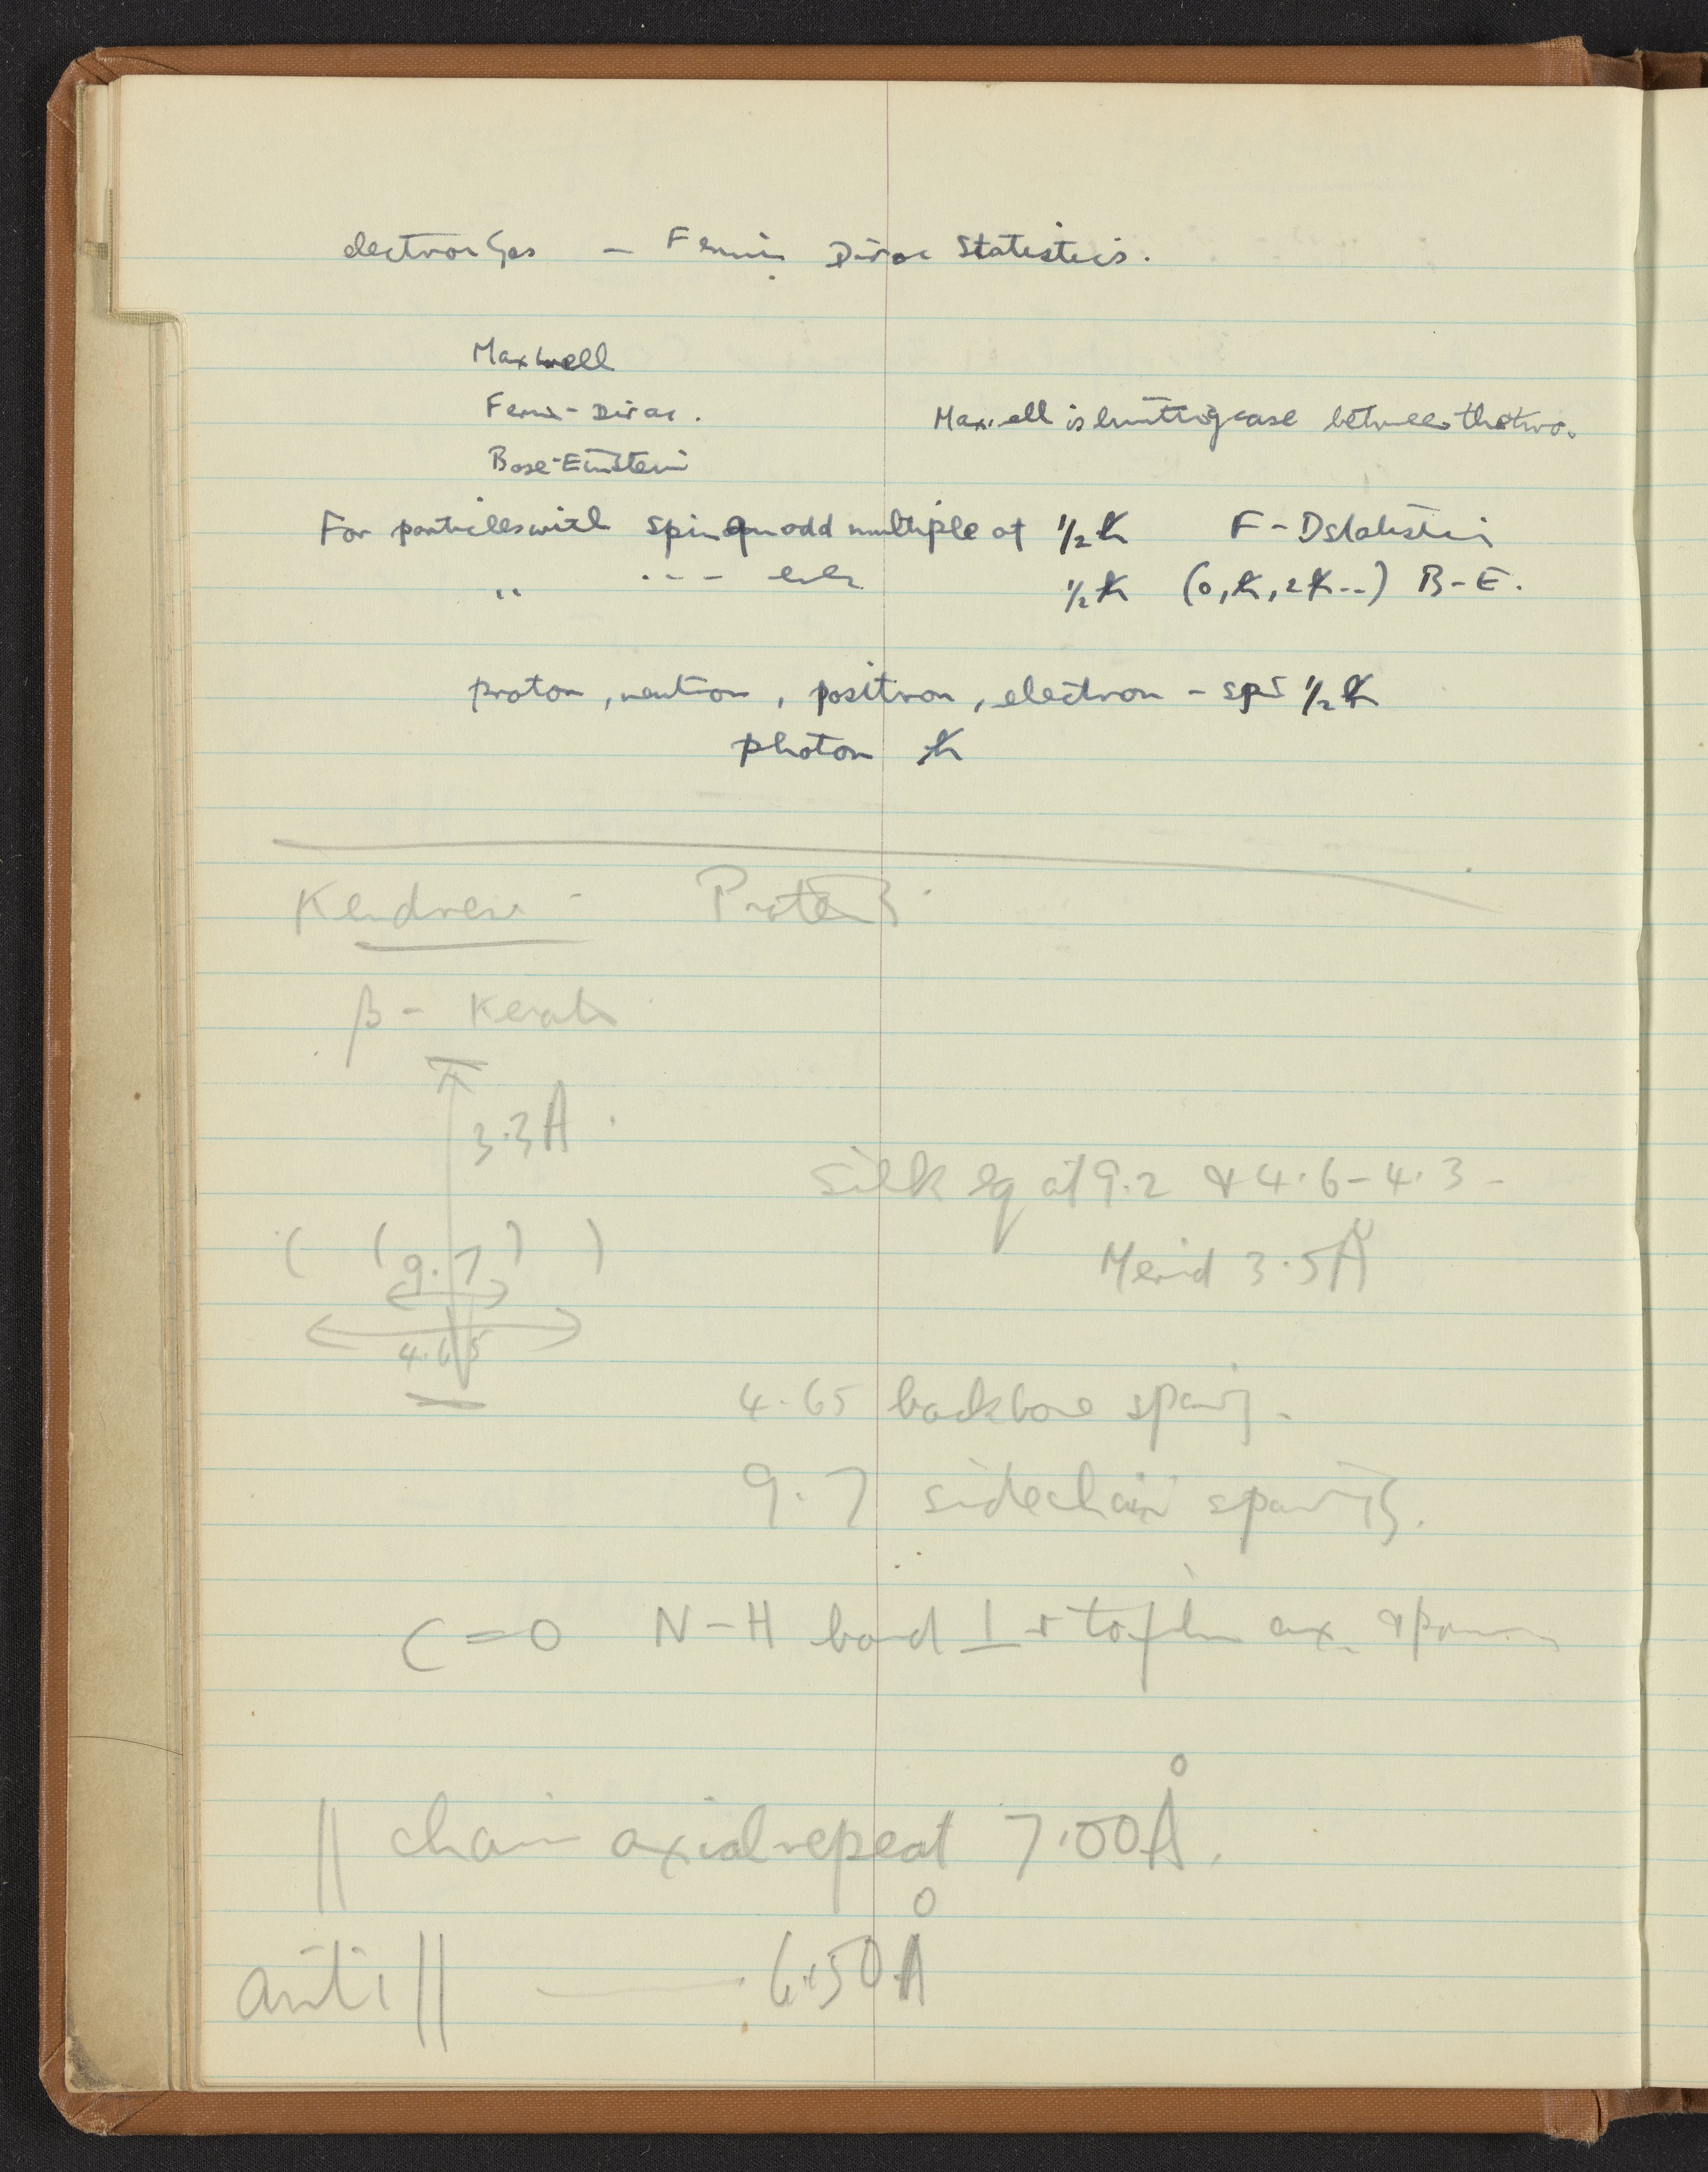 electron Gas - Fermi Dirac Statistics.
Maxwell
Fermi-Dirac.
Maxwell is limiting case between the two.
Bose-Einstein
For particles with spin an odd multiple of ½ ħ F-D statistics
" --- even ½ ħ (0, ħ, 2ħ--) B-E.
proton, neutron, positron, electron - spin ½ ħ
photon ħ
Kendrew - Proteins
β - Keratin
3.3Å
Silk eq at 9.2 & 4.6-4.3-
( ( 9.7 ) )
Merid 3.5Å
4.65
4.65 backbone spacing.
9.7 sidechain spacing.
C=O N-H bond ⊥r to ax.
|| chain axial repeat 7.00Å.
anti || —— 6.50Å